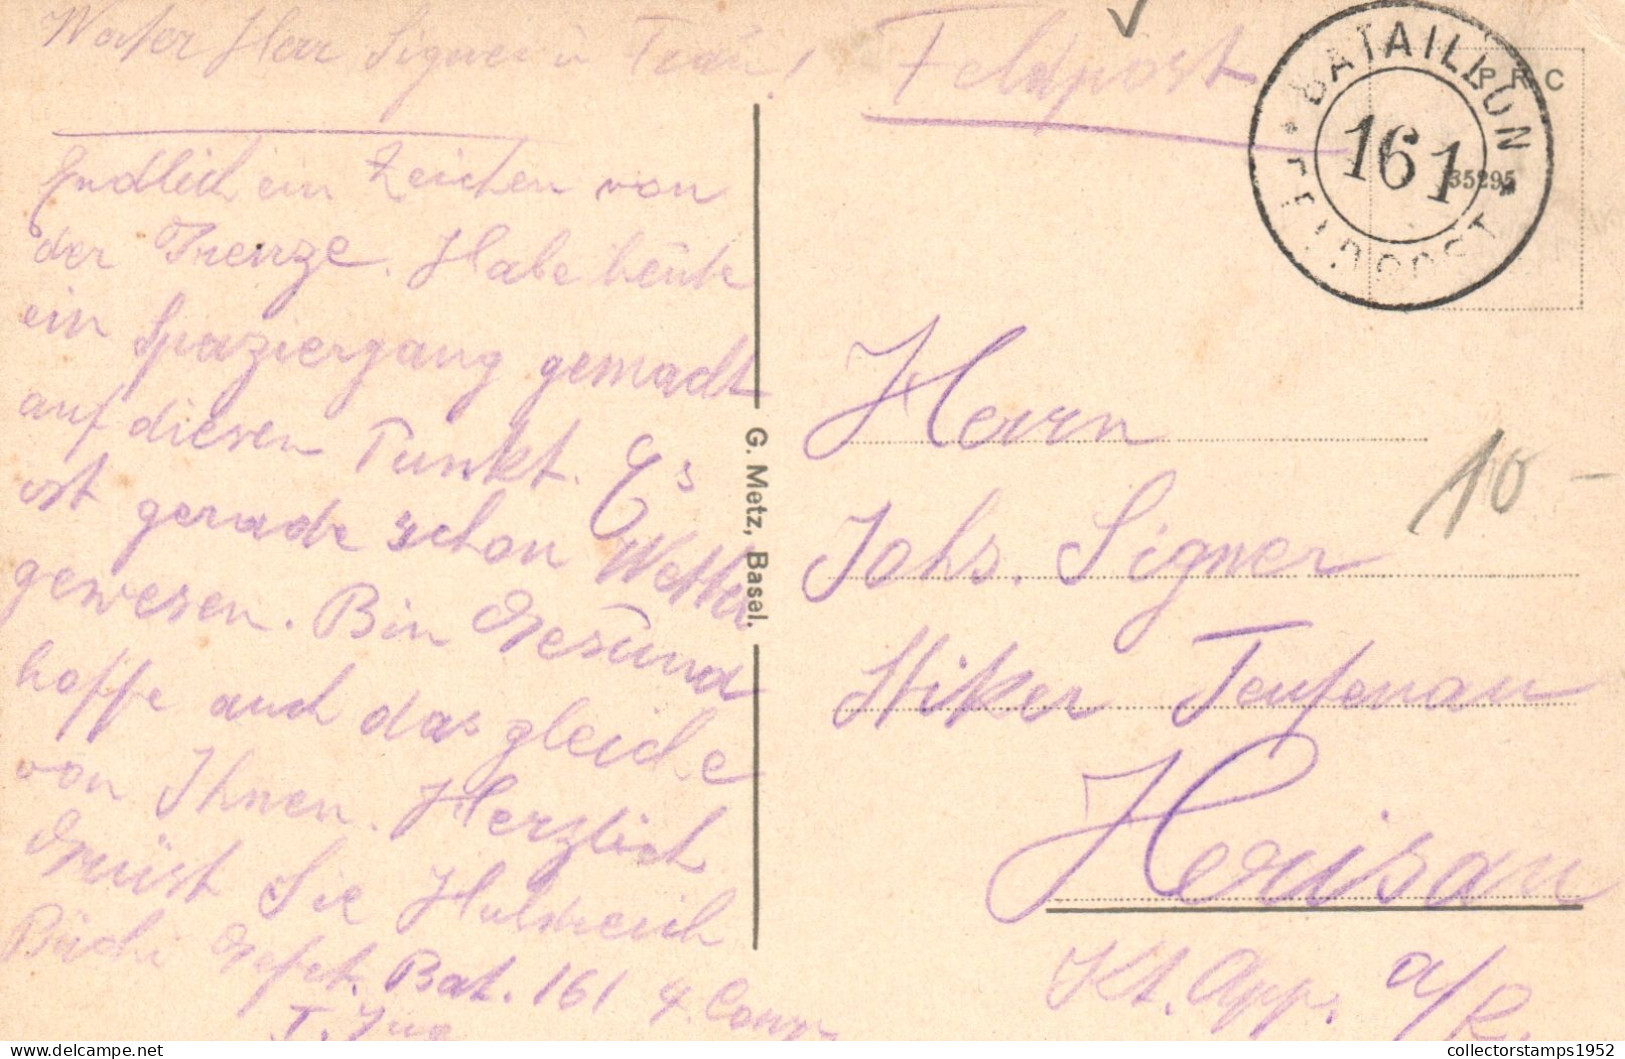 Werter Herr Signer ü Fraü!
Endlich ein Zeichen von
der Grenze. Habe heüte
ein Spaziergang gemacht
auf diesen Punkt. Es
ist gerade schon Wetter
gewesen. Bin Gesünd
hoffe auch das gleiche
von Ihnen. Herzlich
Grüsst Sie Huldreich
Bächi Gefrt. Bat. 161 4. Comp
I. Zug
G. Metz, Basel.
Feldpost
BATAILLON
161
FELDPOST
P F C
35295
Herrn
Johs. Signer
Stiker Teufenau
Herisau
Kt. App. a/R.
10 –
collectorstamps1952